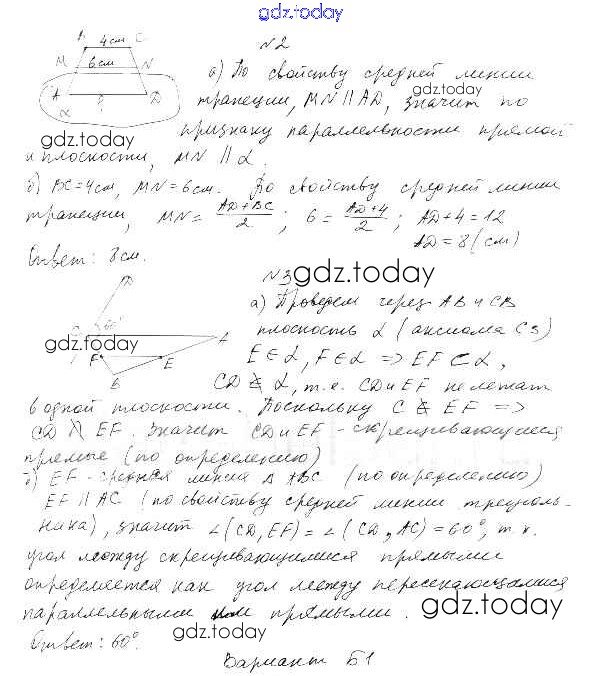 gdz.today
B 4 см C
№2
M 6 см N
а) По свойству средней линии
A D
gdz.today
трапеции, MN ∥ AD, значит по
α
gdz.today
признаку параллельности прямой
и плоскости, MN ∥ α.
б) BC = 4см, MN = 6см. По свойству средней линии
трапеции, MN = (AD+BC)/2 ; 6 = (AD+4)/2 ; AD+4 = 12
AD = 8 (см)
Ответ: 8 см.
D
№3
gdz.today
а) Проведем через AB и CB
C 60° A
плоскость α (аксиома C3)
gdz.today
F E
E ∈ α, F ∈ α => EF ⊂ α,
B
CD ⊄ α, т.е. CD и EF не лежат
в одной плоскости. Поскольку C ∉ EF =>
CD ∦ EF. Значит CD и EF - скрещивающиеся
прямые (по определению)
б) EF - средняя линия △ ABC (по определению)
EF ∥ AC (по свойству средней линии треуголь-
ника), значит ∠(CD, EF) = ∠(CD, AC) = 60°, т.к.
угол между скрещивающимися прямыми
определяется как угол между пересекающимися
параллельными им прямыми.
gdz.today
gdz.today
Ответ: 60°.
Вариант Б1